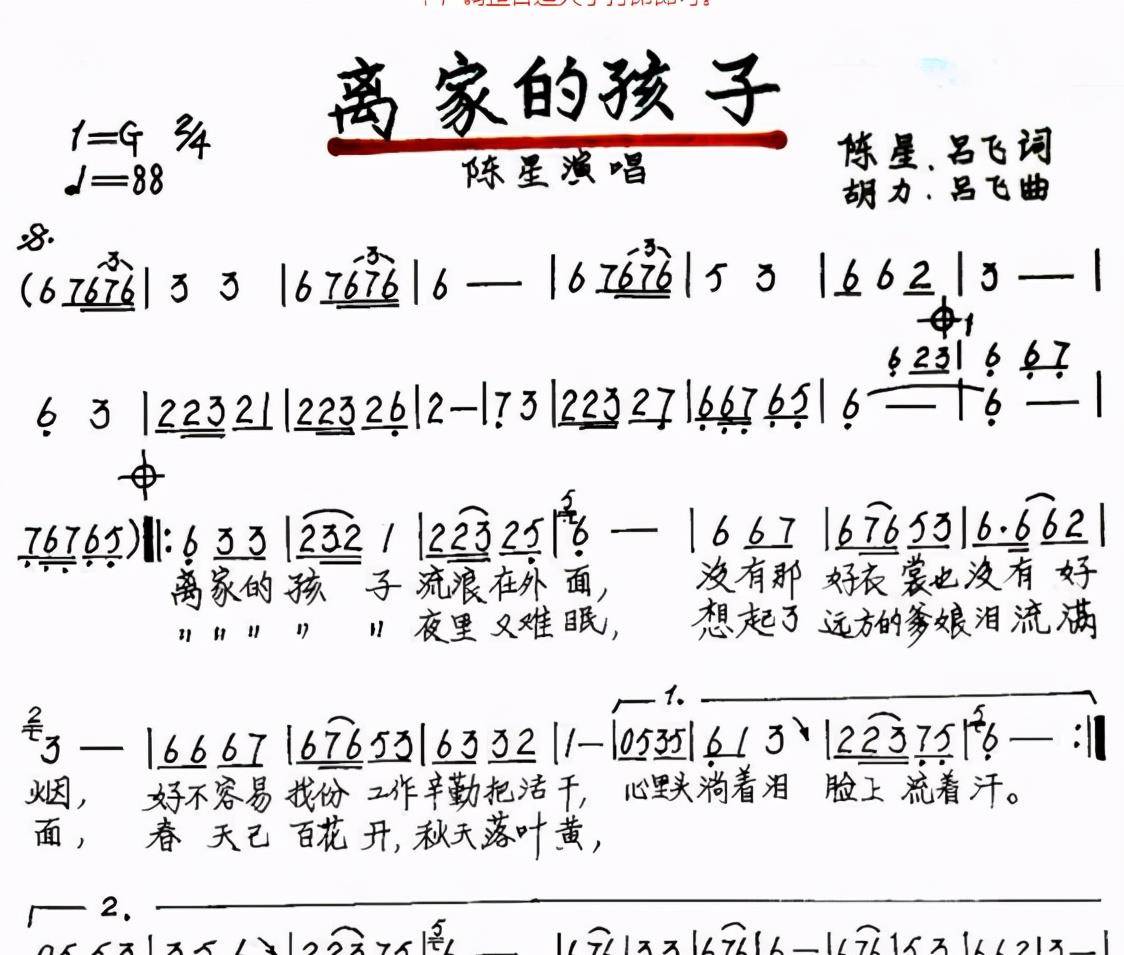 离家的孩子
1=G 2/4
♩=88
陈星演唱
陈星、吕飞词
胡力、吕飞曲
(6 7676 | 3 3 | 6 7676 | 6 — | 6 7676 | 5 3 | 6 6 2 | 3 — |
6 23 | 6 67
6 3 | 223 21 | 223 26 | 2 — | 7 3 | 223 27 | 667 65 | 6 — | 6 — |
767 65) ‖: 6 33 | 232 1 | 223 25 | 6 — | 6 67 | 676 53 | 6·6 62 |
离家的孩 子 流浪在外 面， 没有那 好衣裳也没有 好
〃 〃 〃 〃 〃 夜里又难眠， 想起了 远方的爹娘泪流满
3 — | 66 67 | 676 53 | 63 32 | 1 — | 0535 | 61 3 | 223 75 | 6 — :‖
1.
烟， 好不容易 找份 工作辛勤把活干， 心里头淌着泪 脸上 流着汗。
面， 春 天已 百花 开，秋天落叶黄，
2.